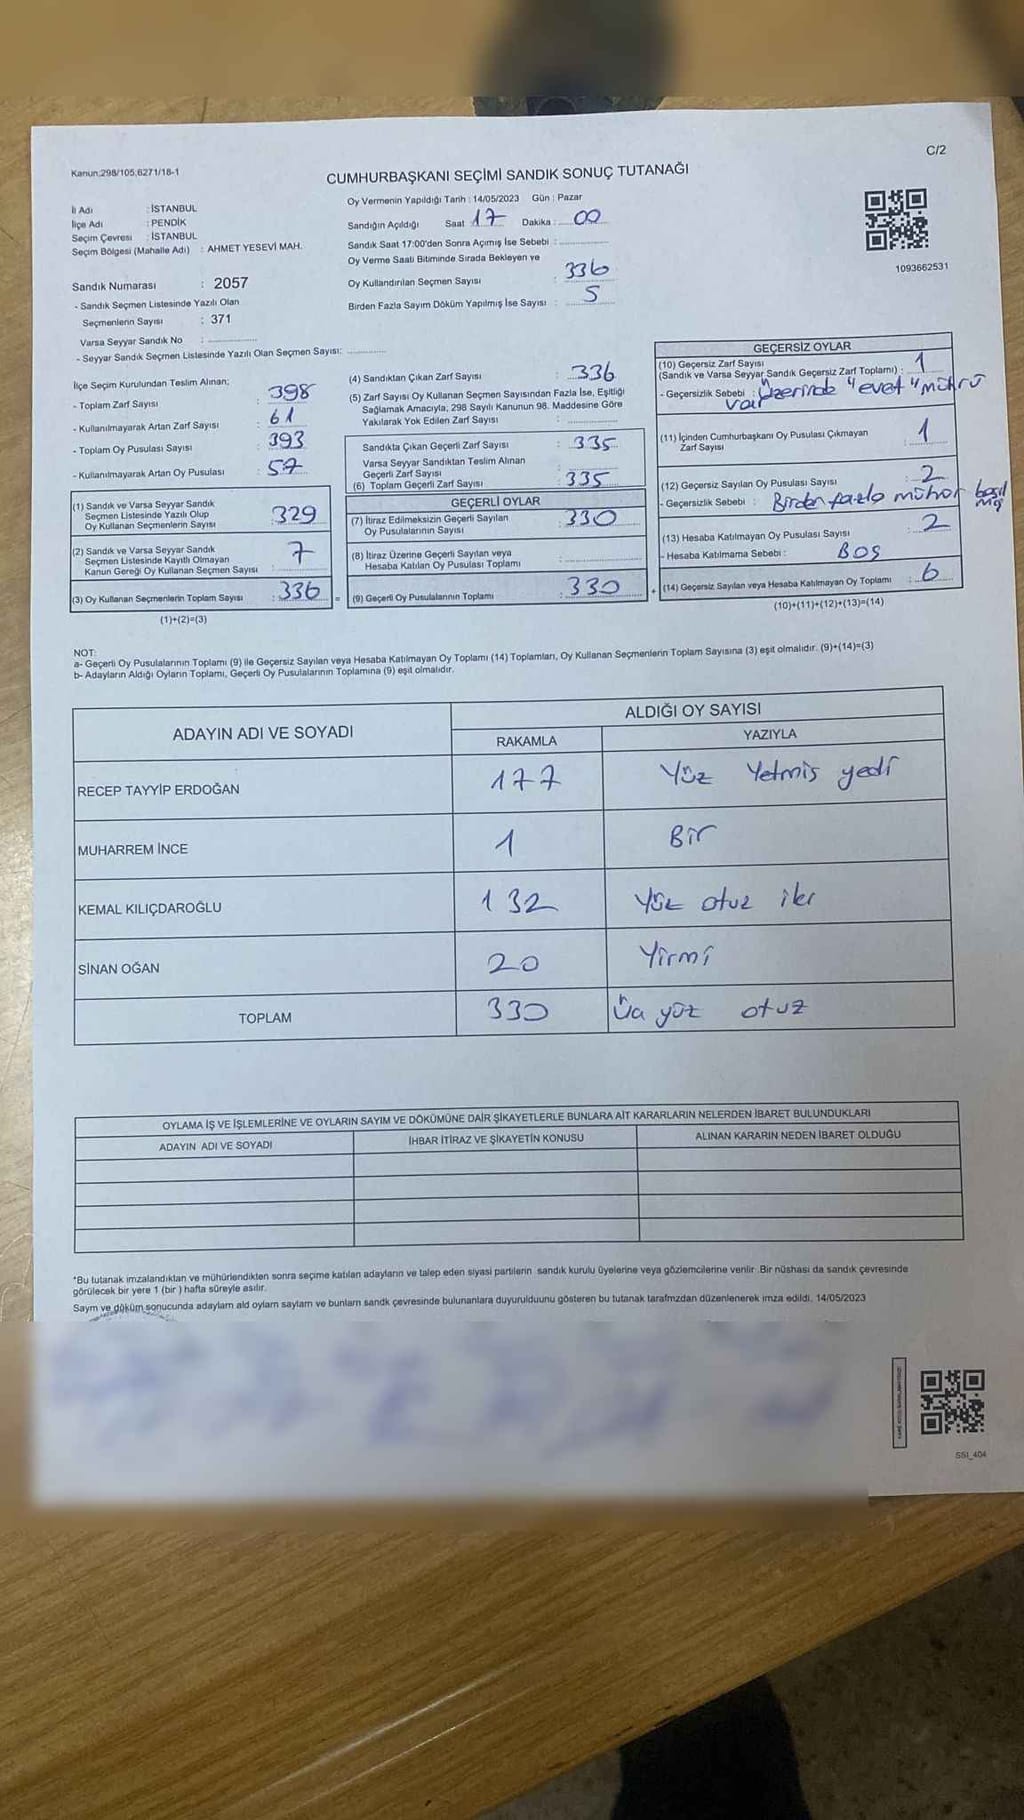 C/2
Kanun:298/105,6271/18-1
CUMHURBAŞKANI SEÇİMİ SANDIK SONUÇ TUTANAĞI
İl Adı : İSTANBUL
İlçe Adı : PENDİK
Seçim Çevresi : İSTANBUL
Seçim Bölgesi (Mahalle Adı) : AHMET YESEVİ MAH.
Oy Vermenin Yapıldığı Tarih : 14/05/2023 Gün : Pazar
Sandığın Açıldığı Saat 17 Dakika : 00
Sandık Saat 17:00'den Sonra Açımış İse Sebebi :
Oy Verme Saati Bitiminde Sırada Bekleyen ve
Oy Kullandırılan Seçmen Sayısı : 336
Birden Fazla Sayım Döküm Yapılmış İse Sayısı : 5
1093662531
Sandık Numarası : 2057
- Sandık Seçmen Listesinde Yazılı Olan
Seçmenlerin Sayısı : 371
Varsa Seyyar Sandık No :
- Seyyar Sandık Seçmen Listesinde Yazılı Olan Seçmen Sayısı:
İlçe Seçim Kurulundan Teslim Alınan;
- Toplam Zarf Sayısı : 398
- Kullanılmayarak Artan Zarf Sayısı : 61
- Toplam Oy Pusulası Sayısı : 393
- Kullanılmayarak Artan Oy Pusulası : 57
(1) Sandık ve Varsa Seyyar Sandık
Seçmen Listesinde Yazılı Olup
Oy Kullanan Seçmenlerin Sayısı : 329
(2) Sandık ve Varsa Seyyar Sandık
Seçmen Listesinde Kayıtlı Olmayan
Kanun Gereği Oy Kullanan Seçmen Sayısı : 7
(3) Oy Kullanan Seçmenlerin Toplam Sayısı : 336 =
(1)+(2)=(3)
(4) Sandıktan Çıkan Zarf Sayısı : 336
(5) Zarf Sayısı Oy Kullanan Seçmen Sayısından Fazla İse, Eşitliği
Sağlamak Amacıyla, 298 Sayılı Kanunun 98. Maddesine Göre
Yakılarak Yok Edilen Zarf Sayısı :
Sandıkta Çıkan Geçerli Zarf Sayısı : 335
Varsa Seyyar Sandıktan Teslim Alınan
Geçerli Zarf Sayısı :
(6) Toplam Geçerli Zarf Sayısı : 335
GEÇERLİ OYLAR
(7) İtiraz Edilmeksizin Geçerli Sayılan
Oy Pusulalarının Sayısı : 330
(8) İtiraz Üzerine Geçerli Sayılan veya
Hesaba Katılan Oy Pusulası Toplamı :
(9) Geçerli Oy Pusulalarının Toplamı : 330 +
GEÇERSİZ OYLAR
(10) Geçersiz Zarf Sayısı
(Sandık ve Varsa Seyyar Sandık Geçersiz Zarf Toplamı) : 1
- Geçersizlik Sebebi : Üzerinde "evet" mührü
var
(11) İçinden Cumhurbaşkanı Oy Pusulası Çıkmayan
Zarf Sayısı : 1
(12) Geçersiz Sayılan Oy Pusulası Sayısı : 2
- Geçersizlik Sebebi : Birden fazla mühür basıl
mış
(13) Hesaba Katılmayan Oy Pusulası Sayısı : 2
- Hesaba Katılmama Sebebi : BOŞ
(14) Geçersiz Sayılan veya Hesaba Katılmayan Oy Toplamı : 6
(10)+(11)+(12)+(13)=(14)
NOT:
a- Geçerli Oy Pusulalarının Toplamı (9) ile Geçersiz Sayılan veya Hesaba Katılmayan Oy Toplamı (14) Toplamları, Oy Kullanan Seçmenlerin Toplam Sayısına (3) eşit olmalıdır. (9)+(14)=(3)
b- Adayların Aldığı Oyların Toplamı, Geçerli Oy Pusulalarının Toplamına (9) eşit olmalıdır.
ADAYIN ADI VE SOYADI ALDIĞI OY SAYISI
RAKAMLA YAZIYLA
RECEP TAYYİP ERDOĞAN 177 Yüz Yetmiş yedi
MUHARREM İNCE 1 Bir
KEMAL KILIÇDAROĞLU 132 Yüz otuz iki
SİNAN OĞAN 20 Yirmi
TOPLAM 330 Üç yüz otuz
OYLAMA İŞ VE İŞLEMLERİNE VE OYLARIN SAYIM VE DÖKÜMÜNE DAİR ŞİKAYETLERLE BUNLARA AİT KARARLARIN NELERDEN İBARET BULUNDUKLARI
ADAYIN ADI VE SOYADI İHBAR İTİRAZ VE ŞİKAYETİN KONUSU ALINAN KARARIN NEDEN İBARET OLDUĞU
*Bu tutanak imzalandıktan ve mühürlendikten sonra seçime katılan adayların ve talep eden siyasi partilerin sandık kurulu üyelerine veya gözlemcilerine verilir .Bir nüshası da sandık çevresinde
görülecek bir yere 1 (bir ) hafta süreyle asılır.
Sayım ve döküm sonucunda adayların ald oyların sayları ve bunların sandk çevresinde bulunanlara duyurulduunu gösteren bu tutanak tarafmzdan düzenlenerek imza edildi. 14/05/2023
SSI_404